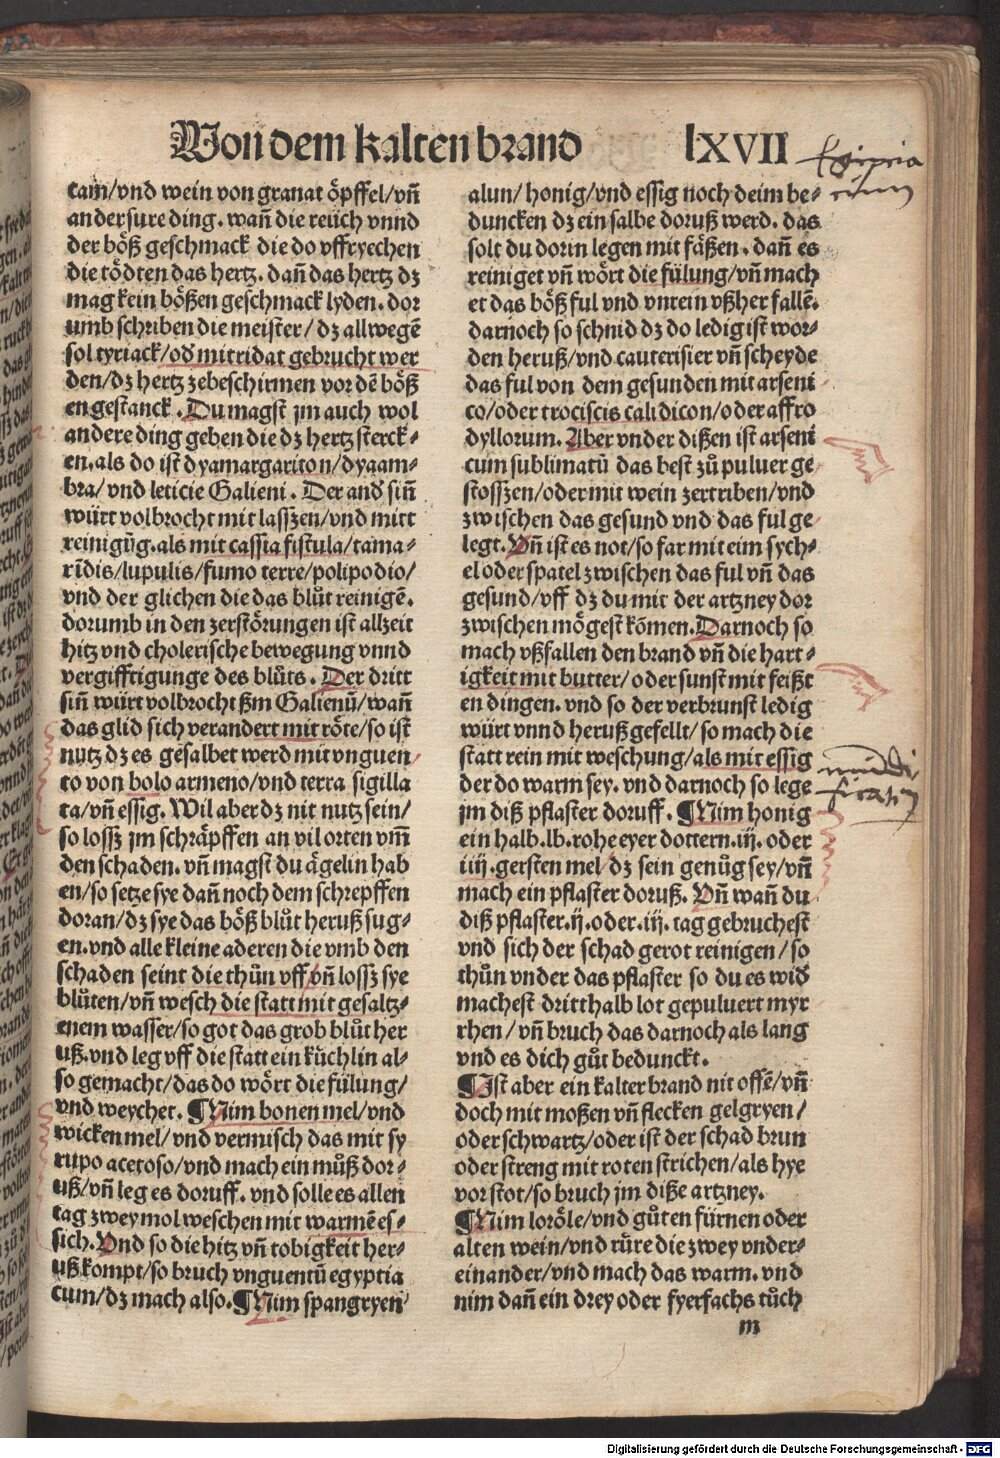 Von dem kalten brand lXVII
tain/vnd wein von granat öpffel/vñ
ander sure ding. wañ die reüch vnnd
der böß geschmack die do vffryechen
die tödten das hertz. dañ das hertz dz
mag kein bößen geschmack lyden. dor
umb schriben die meister/ dz allwegē
sol tyriack/od mitridat gebrucht wer
den/dz hertz zebeschirmen vor dē böß
en gestanck. Du magst jm auch wol
andere ding geben die dz hertz sterck-
en. als do ist dyamargariton/dyaam-
bra/ vnd leticie Galieni. Der and siñ
würt volbrocht mit lasszen/vnd mitt
reinigūg. als mit cassia fistula/tama-
rīdis/lupulis/fumo terre/polipodio/
vnd der glichen die das blůt reinigē.
dorumb in den zerstörungen ist allzeit
hitz vnd cholerische bewegung vnnd
vergifftigunge des blůts. Der dritt
siñ würt volbrocht ßm Galienū/wañ
das glid sich verandert mit röte/so ist
nutz dz es gesalbet werd mit vnguen
to von bolo armeno/vnd terra sigilla
ta/vñ essig. Wil aber dz nit nutz sein/
so lossz jm schräpffen an vil orten vm̄
den schaden. vñ magst du ägelin hab
en/so setze sye dañ noch dem schrepffen
doran/dz sye das böß blůt heruß sug-
en. vnd alle kleine aderen die vmb den
schaden seint die thůn vff/vñ lossz sye
blüten/vñ wesch die statt mit gesaltz-
enem wasser/so got das grob blůt her
uß. vnd leg vff die statt ein küchlin al-
so gemacht/das do wört die fülung/
vnd weychet. ¶Nim bonen mel/vnd
wicken mel/vnd vermisch das mit sy
rupo acetoso/vnd mach ein můß dor-
uß/vñ leg es doruff. vnd solle es allen
tag zwey mol weschen mit warmē es-
sich. Vnd so die hitz vñ tobigkeit her-
uß kompt/so bruch vnguentū egyptia
cum/dz mach also. ¶Nim spangryen
alun/ honig/vnd essig noch deim be-
duncken dz ein salbe doruß werd. das
solt du dorin legen mit fäßen. dañ es
reiniget vñ wört die fülung/vñ mach
et das böß ful vnd vnrein vßher fallē.
darnoch so schnid dz do ledig ist wor-
den heruß/vnd cauterisier vñ scheyde
das ful von dem gesunden mit arseni
co/oder trociscis calidicon/oder affro
dyllorum. Aber vnder dißen ist arseni
cum sublimatū das best zů puluer ge
stosszen/oder mit wein zertriben/vnd
zwischen das gesund vnd das ful ge
legt. Vñ ist es not/so far mit eim sych-
el oder spatel zwischen das ful vñ das
gesund/vff dz du mit der artzney dor
zwischen mögest kōmen. Darnoch so
mach vßfallen den brand vñ die hart-
igkeit mit butter/oder sunst mit feißt
en dingen. vnd so der verbrunst ledig
würt vnnd heruß gefellt/so mach die
statt rein mit weschung/als mit essig
der do warm sey. vnd darnoch so lege
jm diß pflaster doruff. ¶Nim honig
ein halb. lb. rohe eyer dottern. iij. oder
iiij. gersten mel dz sein genůg sey/vñ
mach ein pflaster doruß. Vñ wañ du
diß pflaster. ij. oder. iij. tag gebruchest
vnd sich der schad gerot reinigen/so
thůn vnder das pflaster so du es wid
machest dritthalb lot gepuluert myr
rhen/ vñ bruch das darnoch als lang
vnd es dich gůt bedunckt.
¶Ist aber ein kalter brand nit offē/vñ
doch mit moßen vñ flecken gelgryen/
oder schwartz/oder ist der schad brun
oder streng mit roten strichen/als hye
vor stot/so bruch jm diße artzney.
¶Nim loröle/vnd gůten fürnen oder
alten wein/vnd rüre die zwey vnder-
einander/vnd mach das warm. vnd
nim dañ ein drey oder fyerfachs tůch
m
Digitalisierung gefördert durch die Deutsche Forschungsgemeinschaft - DFG